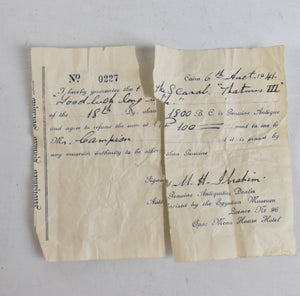 No 0227
Cairo, 6th Aust. 1941.
I hereby guarantee that the Scarab, "Thotmes III"
"Good luck long
of the 18th Dy. 1800 B. C is Genuine Antique
and agree to refund the sum of 100 — paid to me by
Mr. Campion if it is proved by
any museum authority to be other than Genuine
Signed M. H. Ibrahim
Genuine Antiquities Dealer
Authorised by the Egyptian Museum
Licence No 96
Opp: Mena House Hotel